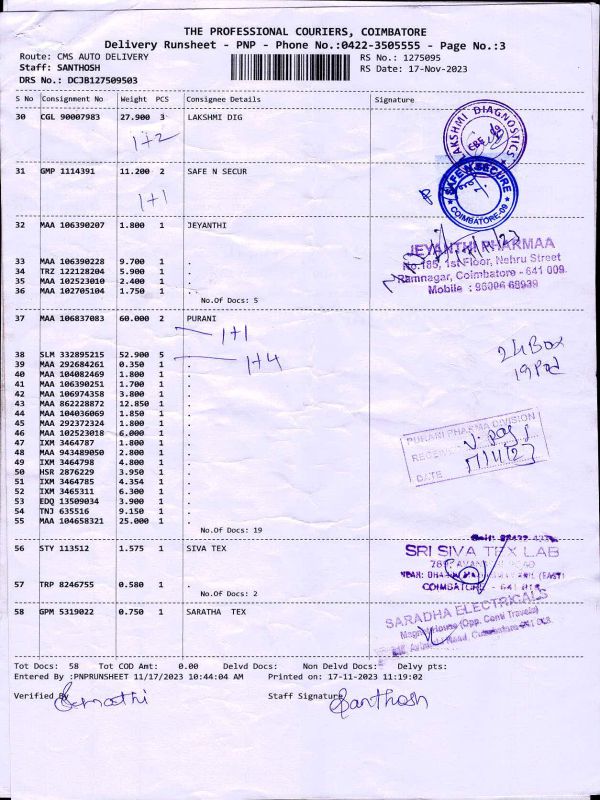 THE PROFESSIONAL COURIERS, COIMBATORE
Delivery Runsheet - PNP - Phone No.:0422-3505555 - Page No.:3
Route: CMS AUTO DELIVERY RS No.: 1275095
Staff: SANTHOSH RS Date: 17-Nov-2023
DRS No.: DCJB127509503
S No Consignment No Weight PCS Consignee Details Signature
30 CGL 90007983 27.900 3 LAKSHMI DIG
LAKSHMI DIAGNOSTICS
CBE
1+2
31 GMP 1114391 11.200 2 SAFE N SECUR
SAFE N SECURE
COIMBATORE-09
1+1
32 MAA 106390207 1.800 1 JEYANTHI
JEYANTHI PHARMAA
No.185, 1st Floor, Nehru Street
Ramnagar, Coimbatore - 641 009.
Mobile : 96006 68939
33 MAA 106390228 9.700 1 .
34 TRZ 122128204 5.900 1 .
35 MAA 102523010 2.400 1 .
36 MAA 102705104 1.750 1 .
No.Of Docs: 5
37 MAA 106837083 60.000 2 PURANI
1+1
38 SLM 332895215 52.900 5 .
1+4
24 Box
39 MAA 292684261 0.350 1 .
40 MAA 104082469 1.800 1 .
41 MAA 106390251 1.700 1 .
42 MAA 106974358 3.800 1 .
43 MAA 862228872 12.850 1 .
44 MAA 104036069 1.850 1 .
45 MAA 292372324 1.800 1 .
46 MAA 102523018 6.000 1 .
47 IXM 3464787 1.800 1 .
48 MAA 943489050 2.800 1 .
49 IXM 3464798 4.800 1 .
50 HSR 2876229 3.950 1 .
51 IXM 3464785 4.354 1 .
52 IXM 3465311 6.300 1 .
53 EDQ 13509034 3.900 1 .
54 TNJ 635516 9.150 1 .
55 MAA 104658321 25.000 1 .
PURANI PHARMA DIVISION
RECEIVED
DATE 17/11/23
No.Of Docs: 19
56 STY 113512 1.575 1 SIVA TEX
SRI SIVA TEX LAB
COIMBATORE
57 TRP 8246755 0.580 1 .
No.Of Docs: 2
58 GPM 5319022 0.750 1 SARATHA TEX
SARADHA ELECTRICALS
Tot Docs: 58 Tot COD Amt: 0.00 Delvd Docs: Non Delvd Docs: Delvy pts:
Entered By :PNPRUNSHEET 11/17/2023 10:44:04 AM Printed on: 17-11-2023 11:19:02
Verified By Staff Signature Santhosh